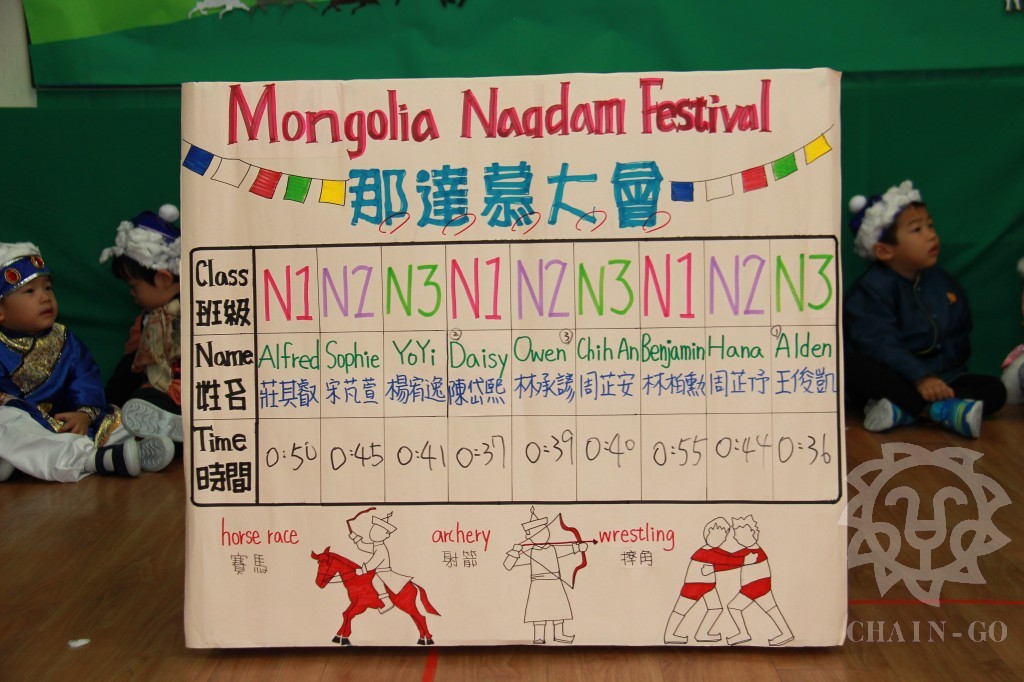 Mongolia Naadam Festival
那達慕大會
Class N1 N2 N3 N1 N2 N3 N1 N2 N3
班級
② ③ ①
Name Alfred Sophie YoYi Daisy Owen Chih An Benjamin Hana Alden
姓名 莊其叡 宋芃萱 楊宥逸 陳岱熙 林承諺 周芷安 林柏勳 周芷伃 王俊凱
Time 0:50 0:45 0:41 0:37 0:39 0:40 0:55 0:44 0:36
時間
horse race archery wrestling
賽馬 射箭 摔角
CHAIN-GO